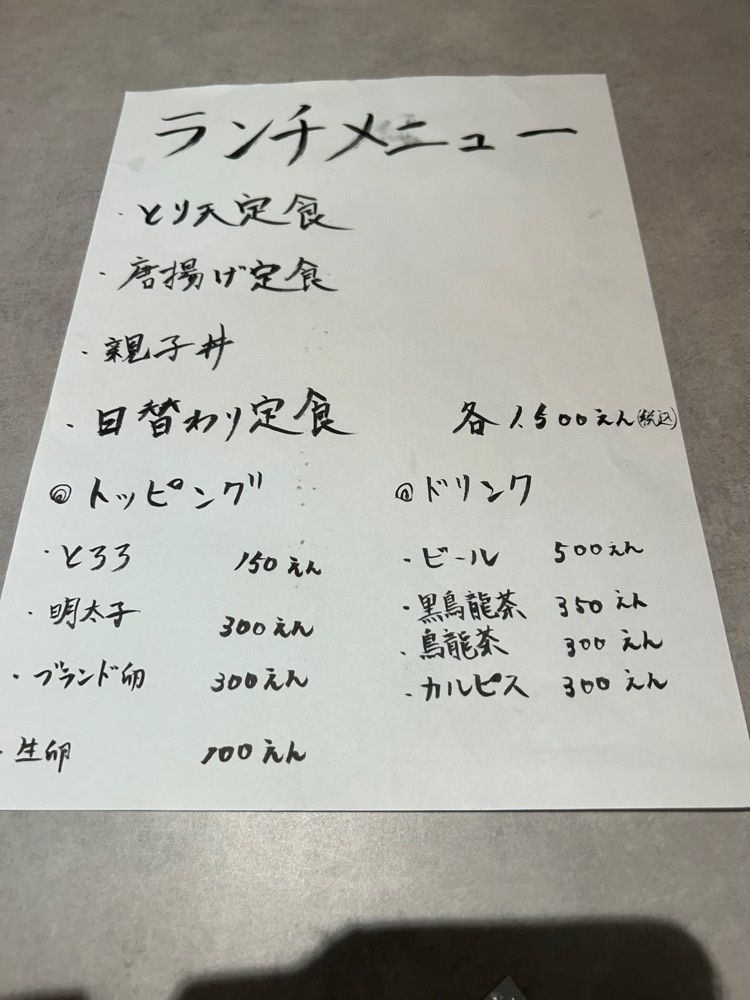 ランチメニュー
・とり天定食
・唐揚げ定食
・親子丼
・日替わり定食 各1,500えん(税込)
◎トッピング
・とろろ 150えん
・明太子 300えん
・ブランド卵 300えん
・生卵 100えん
◎ドリンク
・ビール 500えん
・黒烏龍茶 350えん
・烏龍茶 300えん
・カルピス 300えん